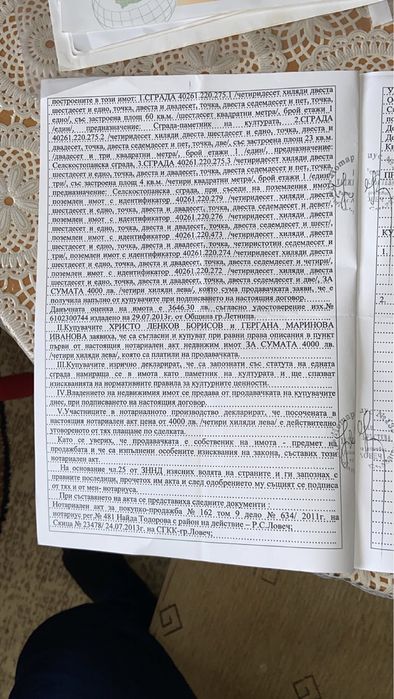 построените в този имот: 1.СГРАДА 40261.220.275.1 /четиридесет хиляди двеста
шестдесет и едно, точка, двеста и двадесет, точка, двеста седемдесет и пет, точка,
едно/, със застроена площ 60 кв.м. /шестдесет квадратни метра/, брой етажи 1
/един/, предназначение: Сграда-паметник на културата, 2.СГРАДА
40261.220.275.2 /четиридесет хиляди двеста шестдесет и едно, точка, двеста и
двадесет, точка, двеста седемдесет и пет, точка, две/, със застроена площ 23 кв.м.
/двадесет и три квадратни метра/, брой етажи 1 /един/, предназначение:
Селскостопанска сграда, 3.СГРАДА 40261.220.275.3 /четиридесет хиляди двеста
шестдесет и едно, точка, двеста и двадесет, точка, двеста седемдесет и пет, точка,
три/, със застроена площ 4 кв.м. /четири квадратни метра/, брой етажи 1 /един/,
предназначение: Селскостопанска сграда, при съседи на поземления имот:
поземлен имот с идентификатор 40261.220.279 /четиридесет хиляди двеста
шестдесет и едно, точка, двеста и двадесет, точка, двеста седемдесет и девет/,
поземлен имот с идентификатор 40261.220.276 /четиридесет хиляди двеста
шестдесет и едно, точка, двеста и двадесет, точка, двеста седемдесет и шест/,
поземлен имот с идентификатор 40261.220.473 /четиридесет хиляди двеста
шестдесет и едно, точка, двеста и двадесет, точка, четиристотин седемдесет и
три/, поземлен имот с идентификатор 40261.220.274 /четиридесет хиляди двеста
шестдесет и едно, точка, двеста и двадесет, точка, двеста седемдесет и четири/,
поземлен имот с идентификатор 40261.220.272 /четиридесет хиляди двеста
шестдесет и едно, точка, двеста и двадесет, точка, двеста седемдесет и две/, ЗА
СУМАТА 4000 лв. /четири хиляди лева/, която сума продавачката заяви, че е
получила напълно от купувачите при подписването на настоящия договор.
Данъчната оценка на имота е 3646.30 лв. съгласно удостоверение изх.№
6102300744 издадено на 29.07.2013г. от Община гр.Летница.
II.Купувачите ХРИСТО ЛЕНКОВ БОРИСОВ и ГЕРГАНА МАРИНОВА
ИВАНОВА заявиха, че са съгласни и купуват при равни права описания в пункт
първи от настоящия нотариален акт недвижим имот ЗА СУМАТА 4000 лв.
/четири хиляди лева/, която са платили на продавачката.
III.Купувачите изрично декларират, че са запознати със статута на едната
сграда намираща се в имота като паметник на културата и ще спазват
изискванията на нормативните правила за културните ценности.
IV.Владението на недвижимия имот се предава от продавачката на купувачите
днес, при подписването на настоящия договор.
V.Участниците в нотариалното производство декларират, че посочената в
настоящия нотариален акт цена от 4000 лв. /четири хиляди лева/ е действително
уговореното от тях плащане по сделката.
Като се уверих, че продавачката е собственик на имота - предмет на
продажбата и че са изпълнени особените изисквания на закона, съставих този
нотариален акт.
На основание чл.25 от ЗННД изясних волята на страните и ги запознах с
правните последици, прочетох им акта и след одобрението му същият се подписа
от тях и от мен-нотариуса.
При съставянето на акта се представиха следните документи:
Нотариален акт за покупко-продажба № 162 том 9 дело № 634/ 2011г. на
нотариус рег.№ 481 Найда Тодорова с район на действие – Р.С.Ловеч;
Скица № 23478/ 24.07.2013г. на СГКК-гр.Ловеч;
1.
2.